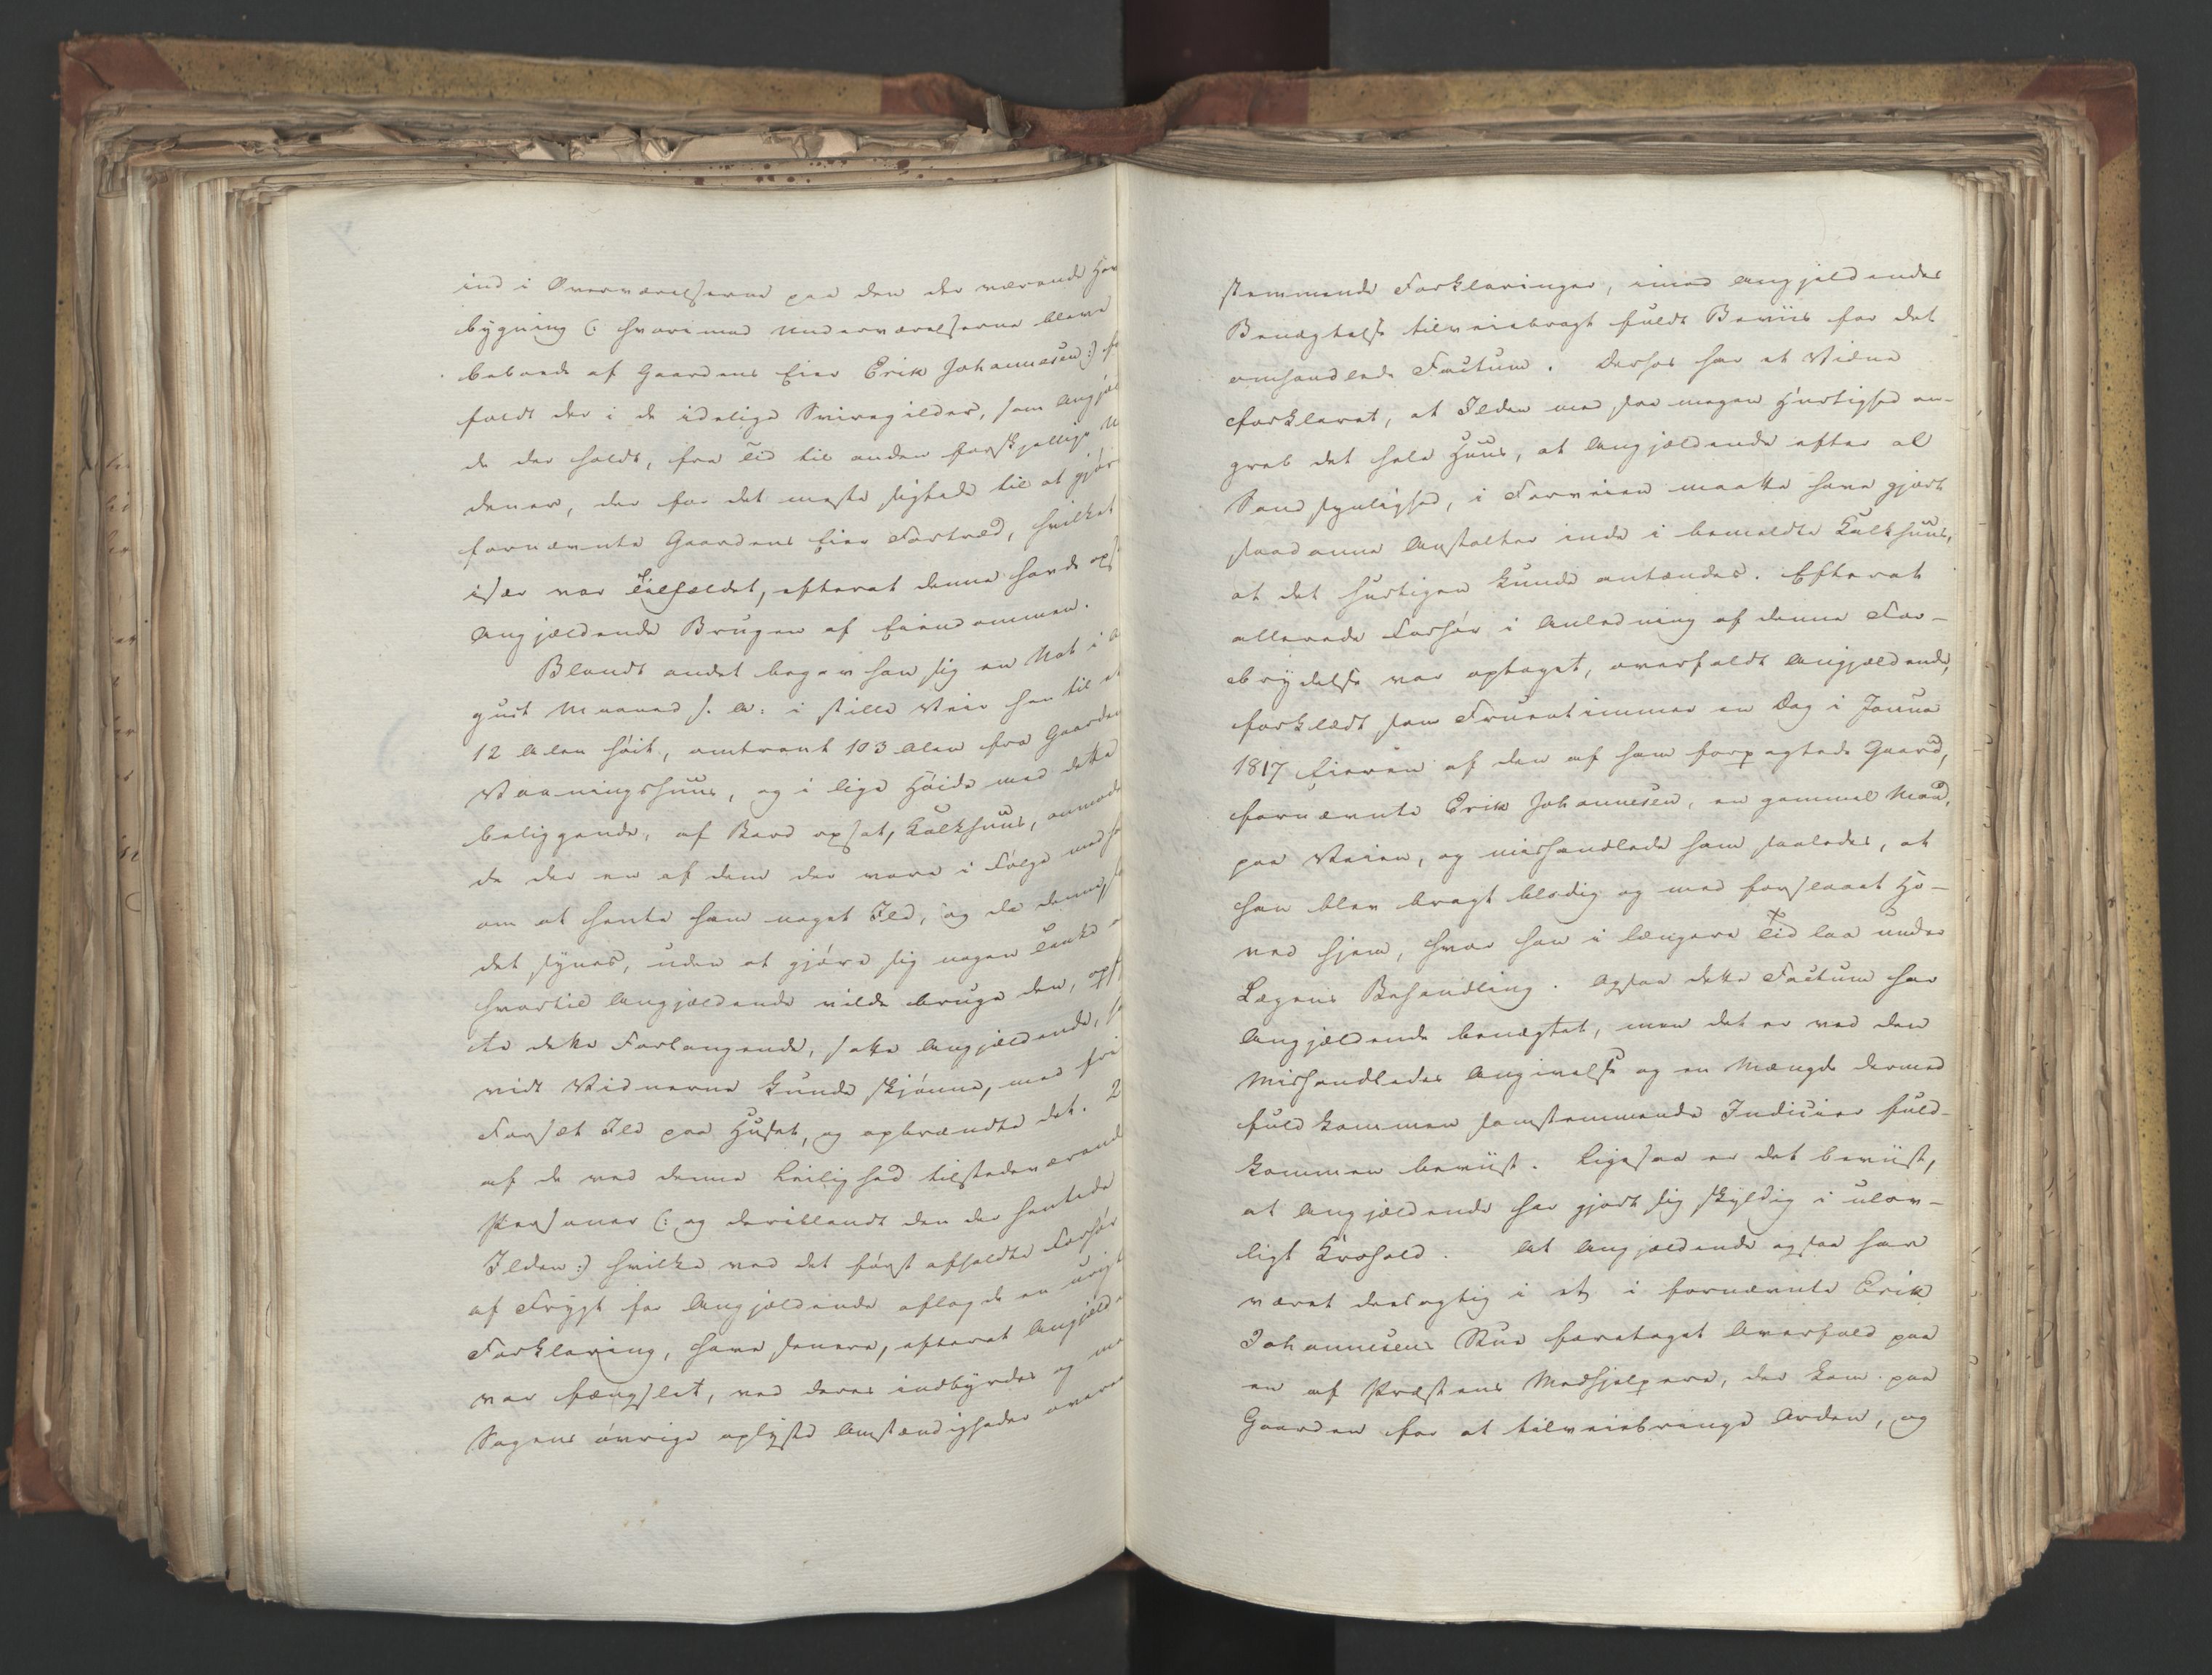 ind i Overværelserne paa den der værende Ho
bygning (: hvorimod Underværelserne bleve
beboede af Gaardens Eier Erik Johannesen:) f
faldt der i de idelige Sviregilder, som Angjæl
de der holdt, fra Tid til anden forskjellige U
dener, der for det meste sigtede til at gjør
fornævnte Gaardens Eier Fortræd, hvilket
især var Tilfældet, efterat denne havde ops
Angjældende Brugen af Eiendommen.
Blandt andet begav han sig en Nat i A
gust Maaned s. A: i stille Veir hen til et
12 Alen høit, omtrent 103 Alen fra Gaarden
Vaaningshuus, og i lige Høide med dette
beliggende, af Bord opsat, Kalkhuus, anmode
de der en af dem der vare i Følge med ha
om at hente ham noget Ild, og da denne, s
det synes, uden at gjøre sig nogen Tanke o
hvortil Angjældende vilde bruge den, opf
te dette Forlangende, satte Angjældende, s
vidt Vidnerne kunde skjønne, med fri
Forsæt Ild paa Huset, og opbrændte det. 2
af de ved denne Leilighed tilstedeværend
Personer (: og deriblandt den der hentede
Ilden:) hvilke ved det først afholdte Forhør
af Frygt for Angjældende aflagde en urigt
Forklaring, have senere, efterat Angjæld
var fængslet, ved deres indbyrdes og me
Sagens øvrige oplyste Omstændigheder overe
stemmende Forklaringer, imod Angjældendes
Benægtelse tilveiebragt fuldt Beviis for det
omhandlede Factum. Derhos har et Vidne
forklaret, at Ilden med saa megen Hurtighed an-
greb det hele Huus, at Angjældende efter al
Sandsynlighed, i Forveien maatte have gjort
saadanne Anstalter inde i bemeldte Kalkhuus,
at det hurtigen kunde antændes. Efterat
allerede Forhør i Anledning af denne For-
brydelse var optaget, overfaldt Angjældende,
forklædt som Fruentimmer en Dag i Janua
1817 Eieren af den af ham forpagtede Gaard,
fornævnte Erik Johannesen, en gammel Mand,
paa Veien, og mishandlede ham saaledes, at
han blev bragt blodig og med forslaaet Ho-
ved hjem, hvor han i længere Tid laa under
Lægens Behandling. Ogsaa dette Factum har
Angjældende benægtet, men det er ved den
Mishandledes Angivelse og en Mængde dermed
fuldkommen samstemmende Indicier fuld-
kommen beviist. Ligesaa er det beviist,
at Angjældende har gjort sig skyldig i ulov-
ligt Krohold. At Angjældende ogsaa har
været deelagtig i et i fornævnte Erik
Johannesens Stue foretaget Overfald paa
en af Præstens Medhjelpere, der kom paa
Gaarden for at tilveiebringe Orden, og